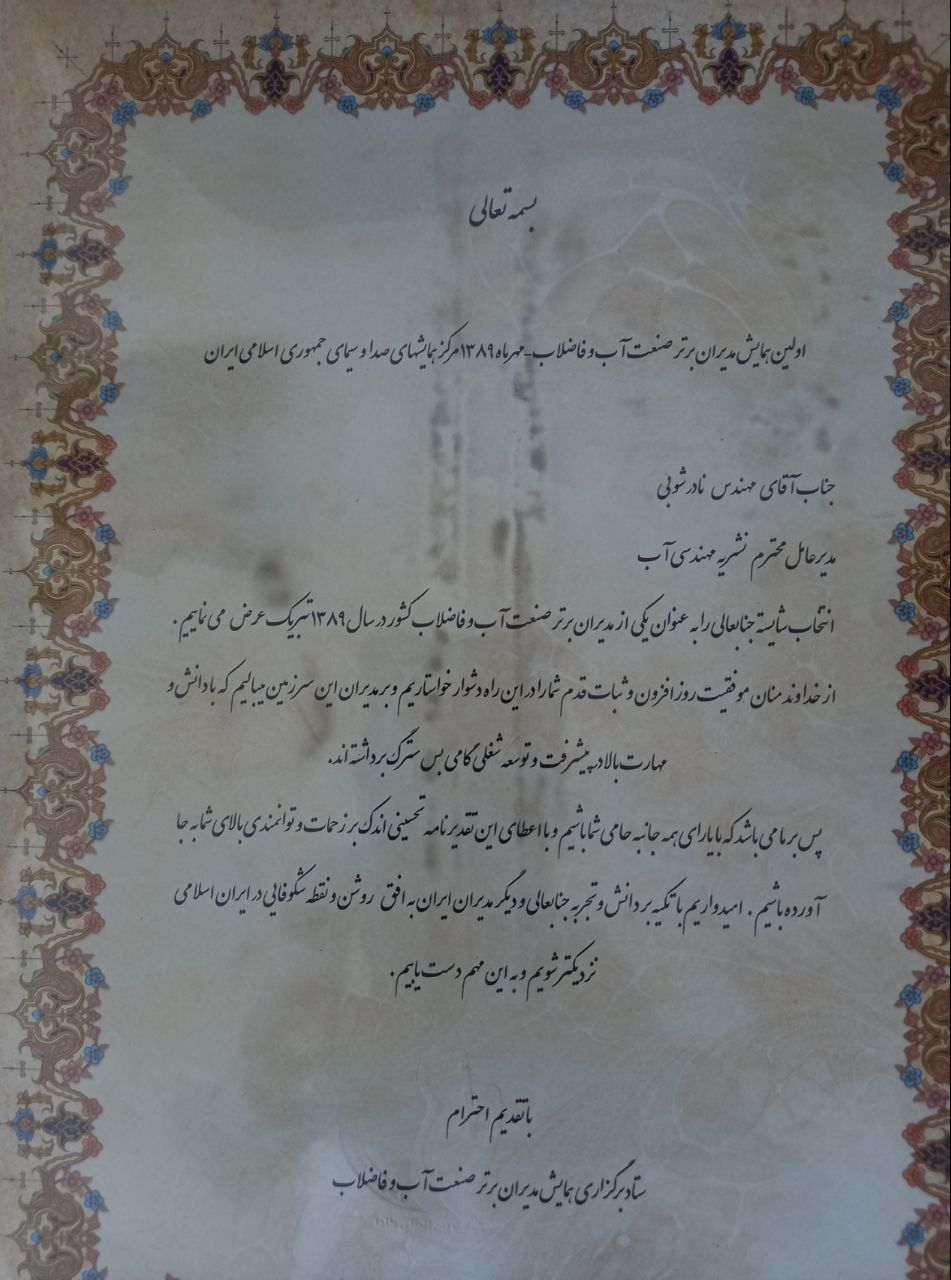 بسمه تعالی
اولین همایش مدیران برتر صنعت آب و فاضلاب - مهرماه ۱۳۸۹ مرکز همایشهای صدا و سیمای جمهوری اسلامی ایران
جناب آقای مهندس نادر شوبی
مدیرعامل محترم نشریه مهندسی آب
انتخاب شایسته جنابعالی را به عنوان یکی از مدیران برتر صنعت آب و فاضلاب کشور در سال ۱۳۸۹ تبریک عرض می نماییم .
از خداوند منان موفقیت روز افزون و ثبات قدم شما را در این راه دشوار خواستاریم و بر مدیران این سرزمین میبالیم که با دانش و
مهارت بالا در پیشرفت و توسعه شغلی گامی بس سترگ برداشته اند.
پس بر ما می باشد که با یارای همه جانبه حامی شما باشیم و با اعطای این تقدیر نامه تحسینی اندک بر زحمات و توانمندی بالای شما به جا
آورده باشیم . امیدواریم با تکیه بر دانش و تجربه جنابعالی و دیگر مدیران ایران به افق روشن و نقطه شکوفایی در ایران اسلامی
نزدیکتر شویم و به این مهم دست یابیم .
با تقدیم احترام
ستاد برگزاری همایش مدیران برتر صنعت آب و فاضلاب